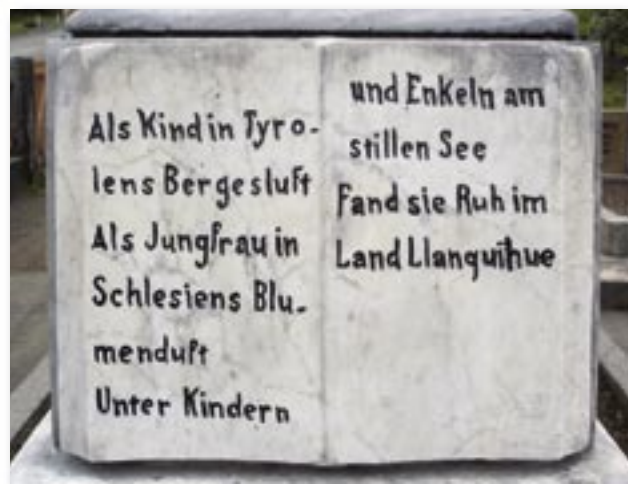 Als Kind in Tyro-
lens Bergesluft
Als Jungfrau in
Schlesiens Blu-
menduft
Unter Kindern
und Enkeln am
stillen See
Fand sie Ruh im
Land Llanquihue